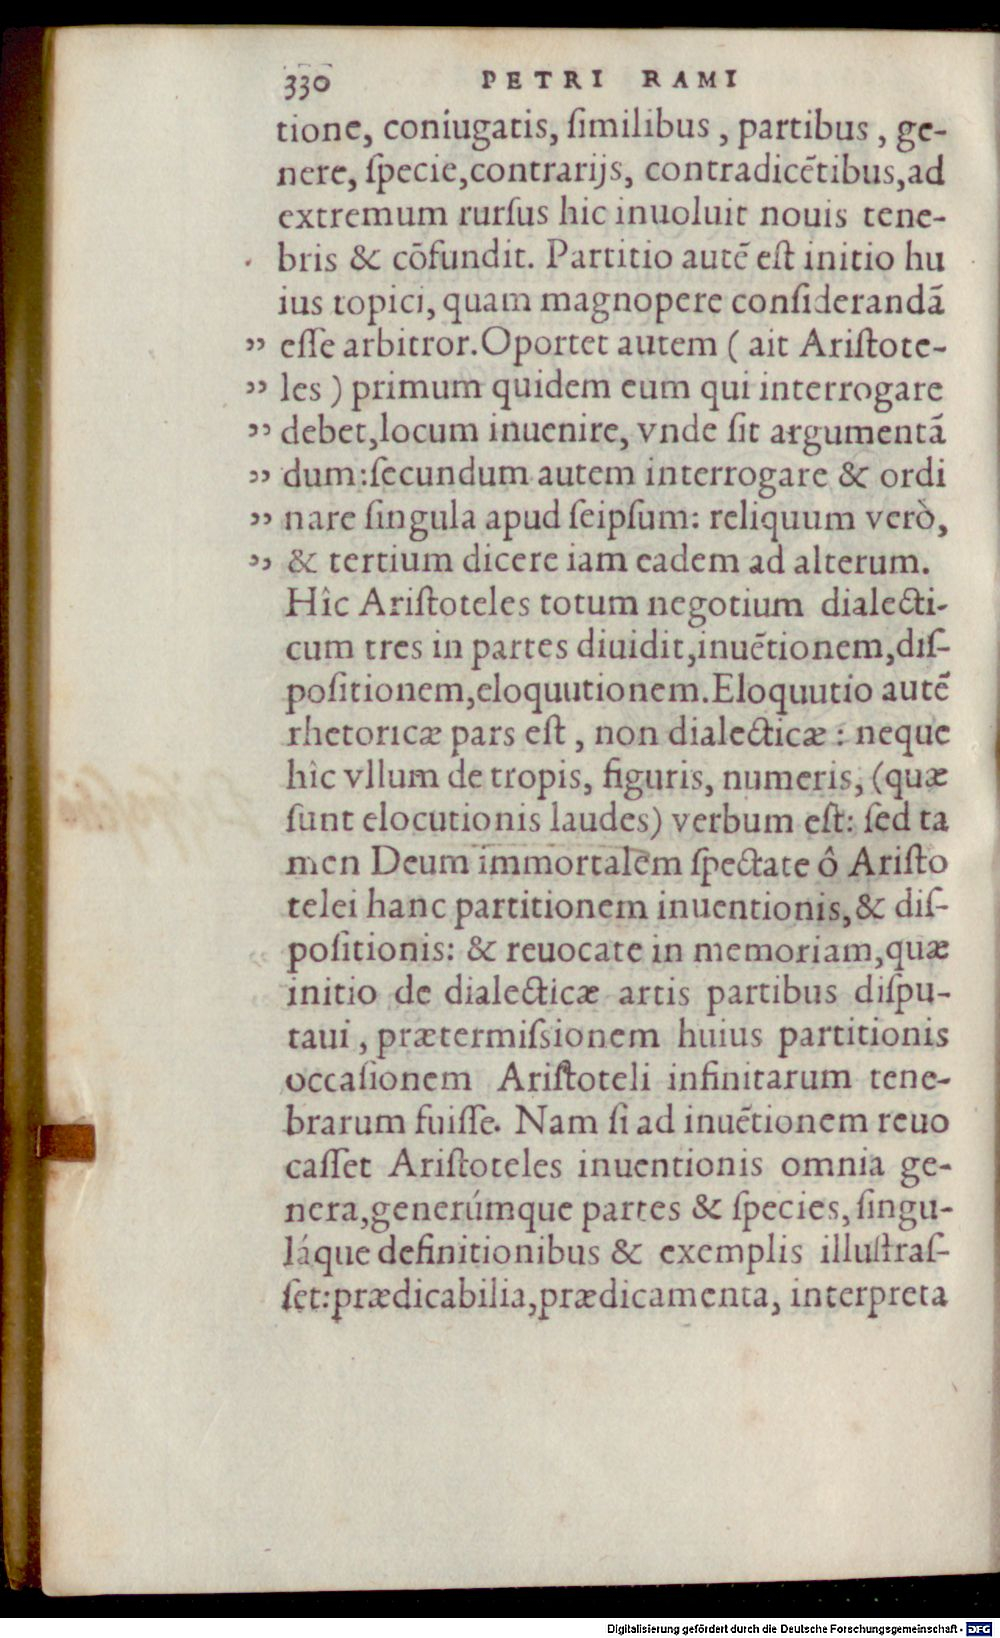 330 PETRI RAMI
tione, coniugatis, ſimilibus , partibus , ge-
nere, ſpecie,contrarijs, contradicẽtibus,ad
extremum rurſus hic inuoluit nouis tene-
bris & cõfundit. Partitio autẽ eſt initio hu
ius topici, quam magnopere conſiderandã
„ eſſe arbitror.Oportet autem ( ait Ariſtote-
„ les ) primum quidem eum qui interrogare
„ debet,locum inuenire, vnde ſit argumentã
„ dum:ſecundum autem interrogare & ordi
„ nare ſingula apud ſeipſum: reliquum verò,
„ & tertium dicere iam eadem ad alterum.
Hîc Ariſtoteles totum negotium dialecti-
cum tres in partes diuidit,inuẽtionem,diſ-
poſitionem,eloquutionem.Eloquutio autẽ
rhetoricæ pars eſt , non dialecticæ : neque
hîc vllum de tropis, figuris, numeris, (quæ
ſunt elocutionis laudes) verbum eſt: ſed ta
men Deum immortalem ſpectate ô Ariſto
telei hanc partitionem inuentionis,& diſ-
poſitionis: & reuocate in memoriam,quæ
initio de dialecticæ artis partibus diſpu-
taui , prætermiſsionem huius partitionis
occaſionem Ariſtoteli infinitarum tene-
brarum fuiſſe. Nam ſi ad inuẽtionem reuo
caſſet Ariſtoteles inuentionis omnia ge-
nera,generúmque partes & ſpecies, ſingu-
láque definitionibus & exemplis illuſtraſ-
ſet:prædicabilia,prædicamenta, interpreta
Digitalisierung gefördert durch die Deutsche Forschungsgemeinschaft - DFG